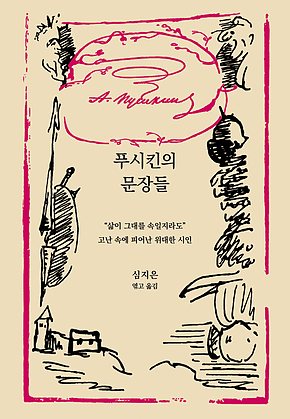 А. Пушкин
푸시킨의
문장들
“삶이 그대를 속일지라도”
고난 속에 피어난 위대한 시인
심지은
엮고 옮김